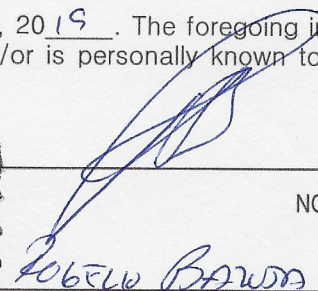 , 2019. The foregoing i
/or is personally known to
NO
ROGELIO